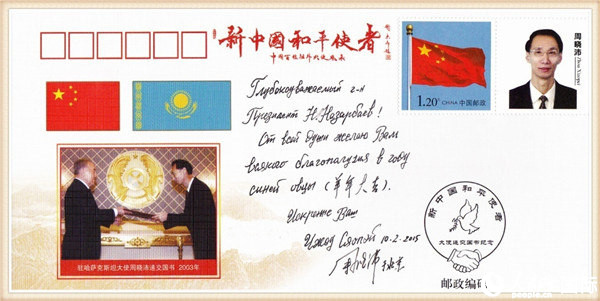 新中國和平使者
中国百位驻外大使签名
1.20元 CHINA 中国邮政
周晓沛
Zhou Xiaopei
Глубокоуважаемый г-н
Президент Н.Назарбаев!
От всей души желаю Вам
всякого благополучия в году
синей овцы (羊年大吉).
Искренне Ваш
Чжоу Сяопэй 10.2.2015
周晓沛
驻哈萨克斯坦大使周晓沛递交国书 2003年
新中国和平使者
大使递交国书纪念
邮政编码